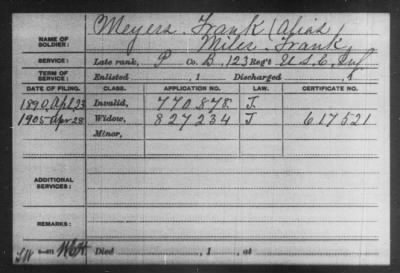 NAME OF SOLDIER: Meyers, Frank (Alias)
Miles, Frank,
SERVICE: Late rank, P Co. B, 123 Reg't U.S.C. Inf
TERM OF SERVICE: Enlisted , 1 Discharged , 1
DATE OF FILING. CLASS. APPLICATION NO. LAW. CERTIFICATE NO.
1890, Apl 23 Invalid, 770878 J.
1905 Apr 28 Widow, 827234 J 617521
Minor,
ADDITIONAL SERVICES:
REMARKS:
Died , 1 , at